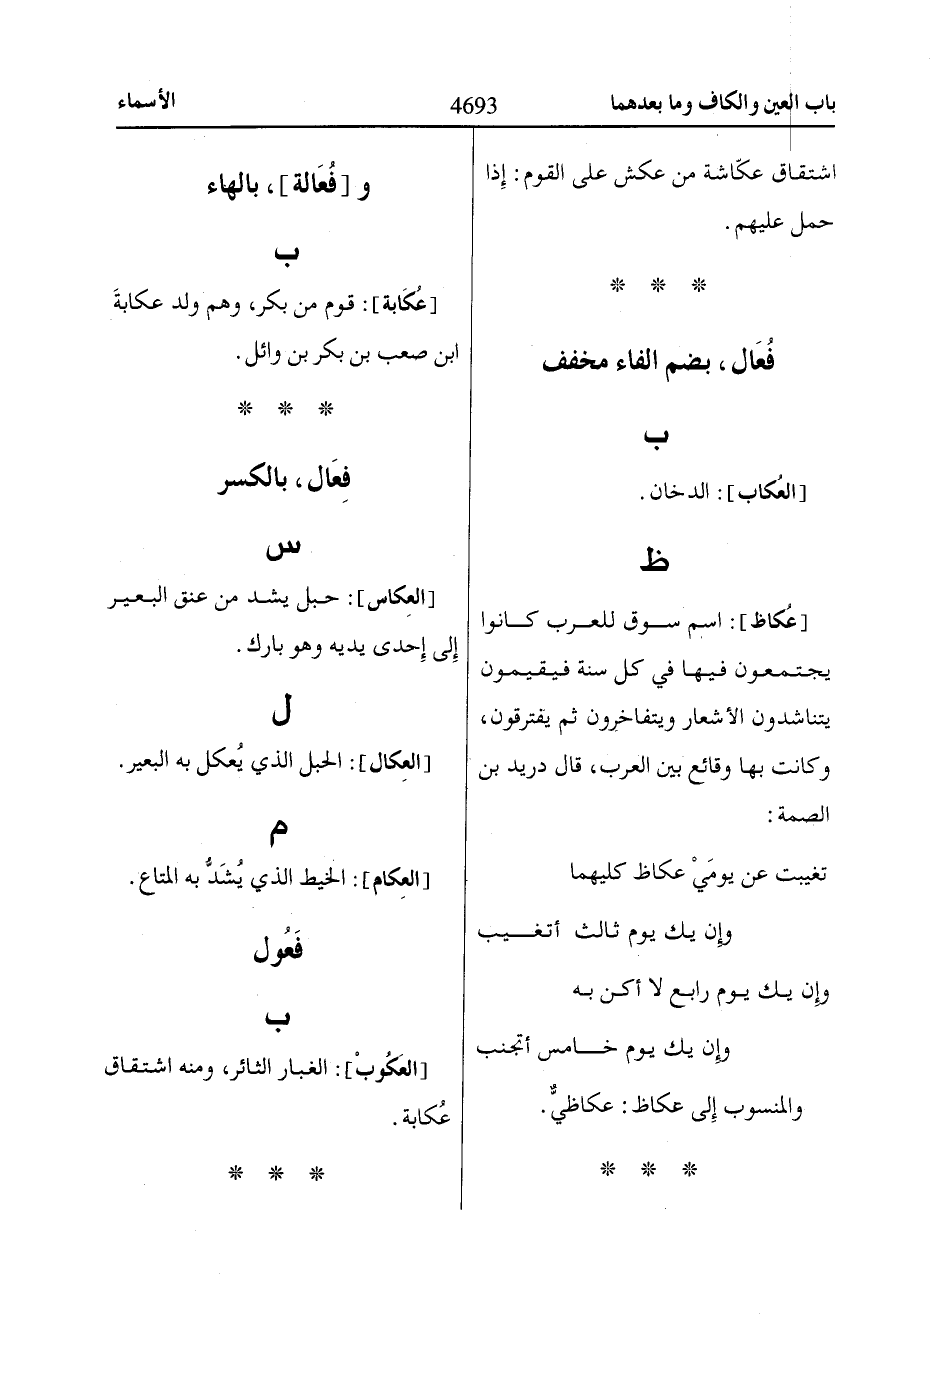 باب العين والكاف وما بعدهما
4693
الأسماء
اشتقاق عكّاشة من عكش على القوم: إذا
حمل عليهم.
* * *
فُعَال، بضم الفاء مخفف
ب
[العُكاب]: الدخان.
ظ
[عُكاظ]: اسم سوق للعرب كانوا
يجتمعون فيها في كل سنة فيقيمون
يتناشدون الأشعار ويتفاخرون ثم يفترقون،
وكانت بها وقائع بين العرب، قال دريد بن
الصمة:
تغيبت عن يومَيْ عكاظ كليهما
وإن يك يوم ثالث أتغيب
وإن يك يوم رابع لا أكن به
وإن يك يوم خامس أتجنب
والمنسوب إلى عكاظ: عكاظيٌّ.
* * *
و [فُعَالة]، بالهاء
ب
[عُكَابة]: قوم من بكر، وهم ولد عكابةَ
ابن صعب بن بكر بن وائل.
* * *
فِعَال، بالكسر
س
[العِكاس]: حبل يشد من عنق البعير
إلى إحدى يديه وهو بارك.
ل
[العِكال]: الحبل الذي يُعكل به البعير.
م
[العِكام]: الخيط الذي يُشَدُّ به المتاع.
فَعُول
ب
[العَكُوبْ]: الغبار الثائر، ومنه اشتقاق
عُكابة.
* * *